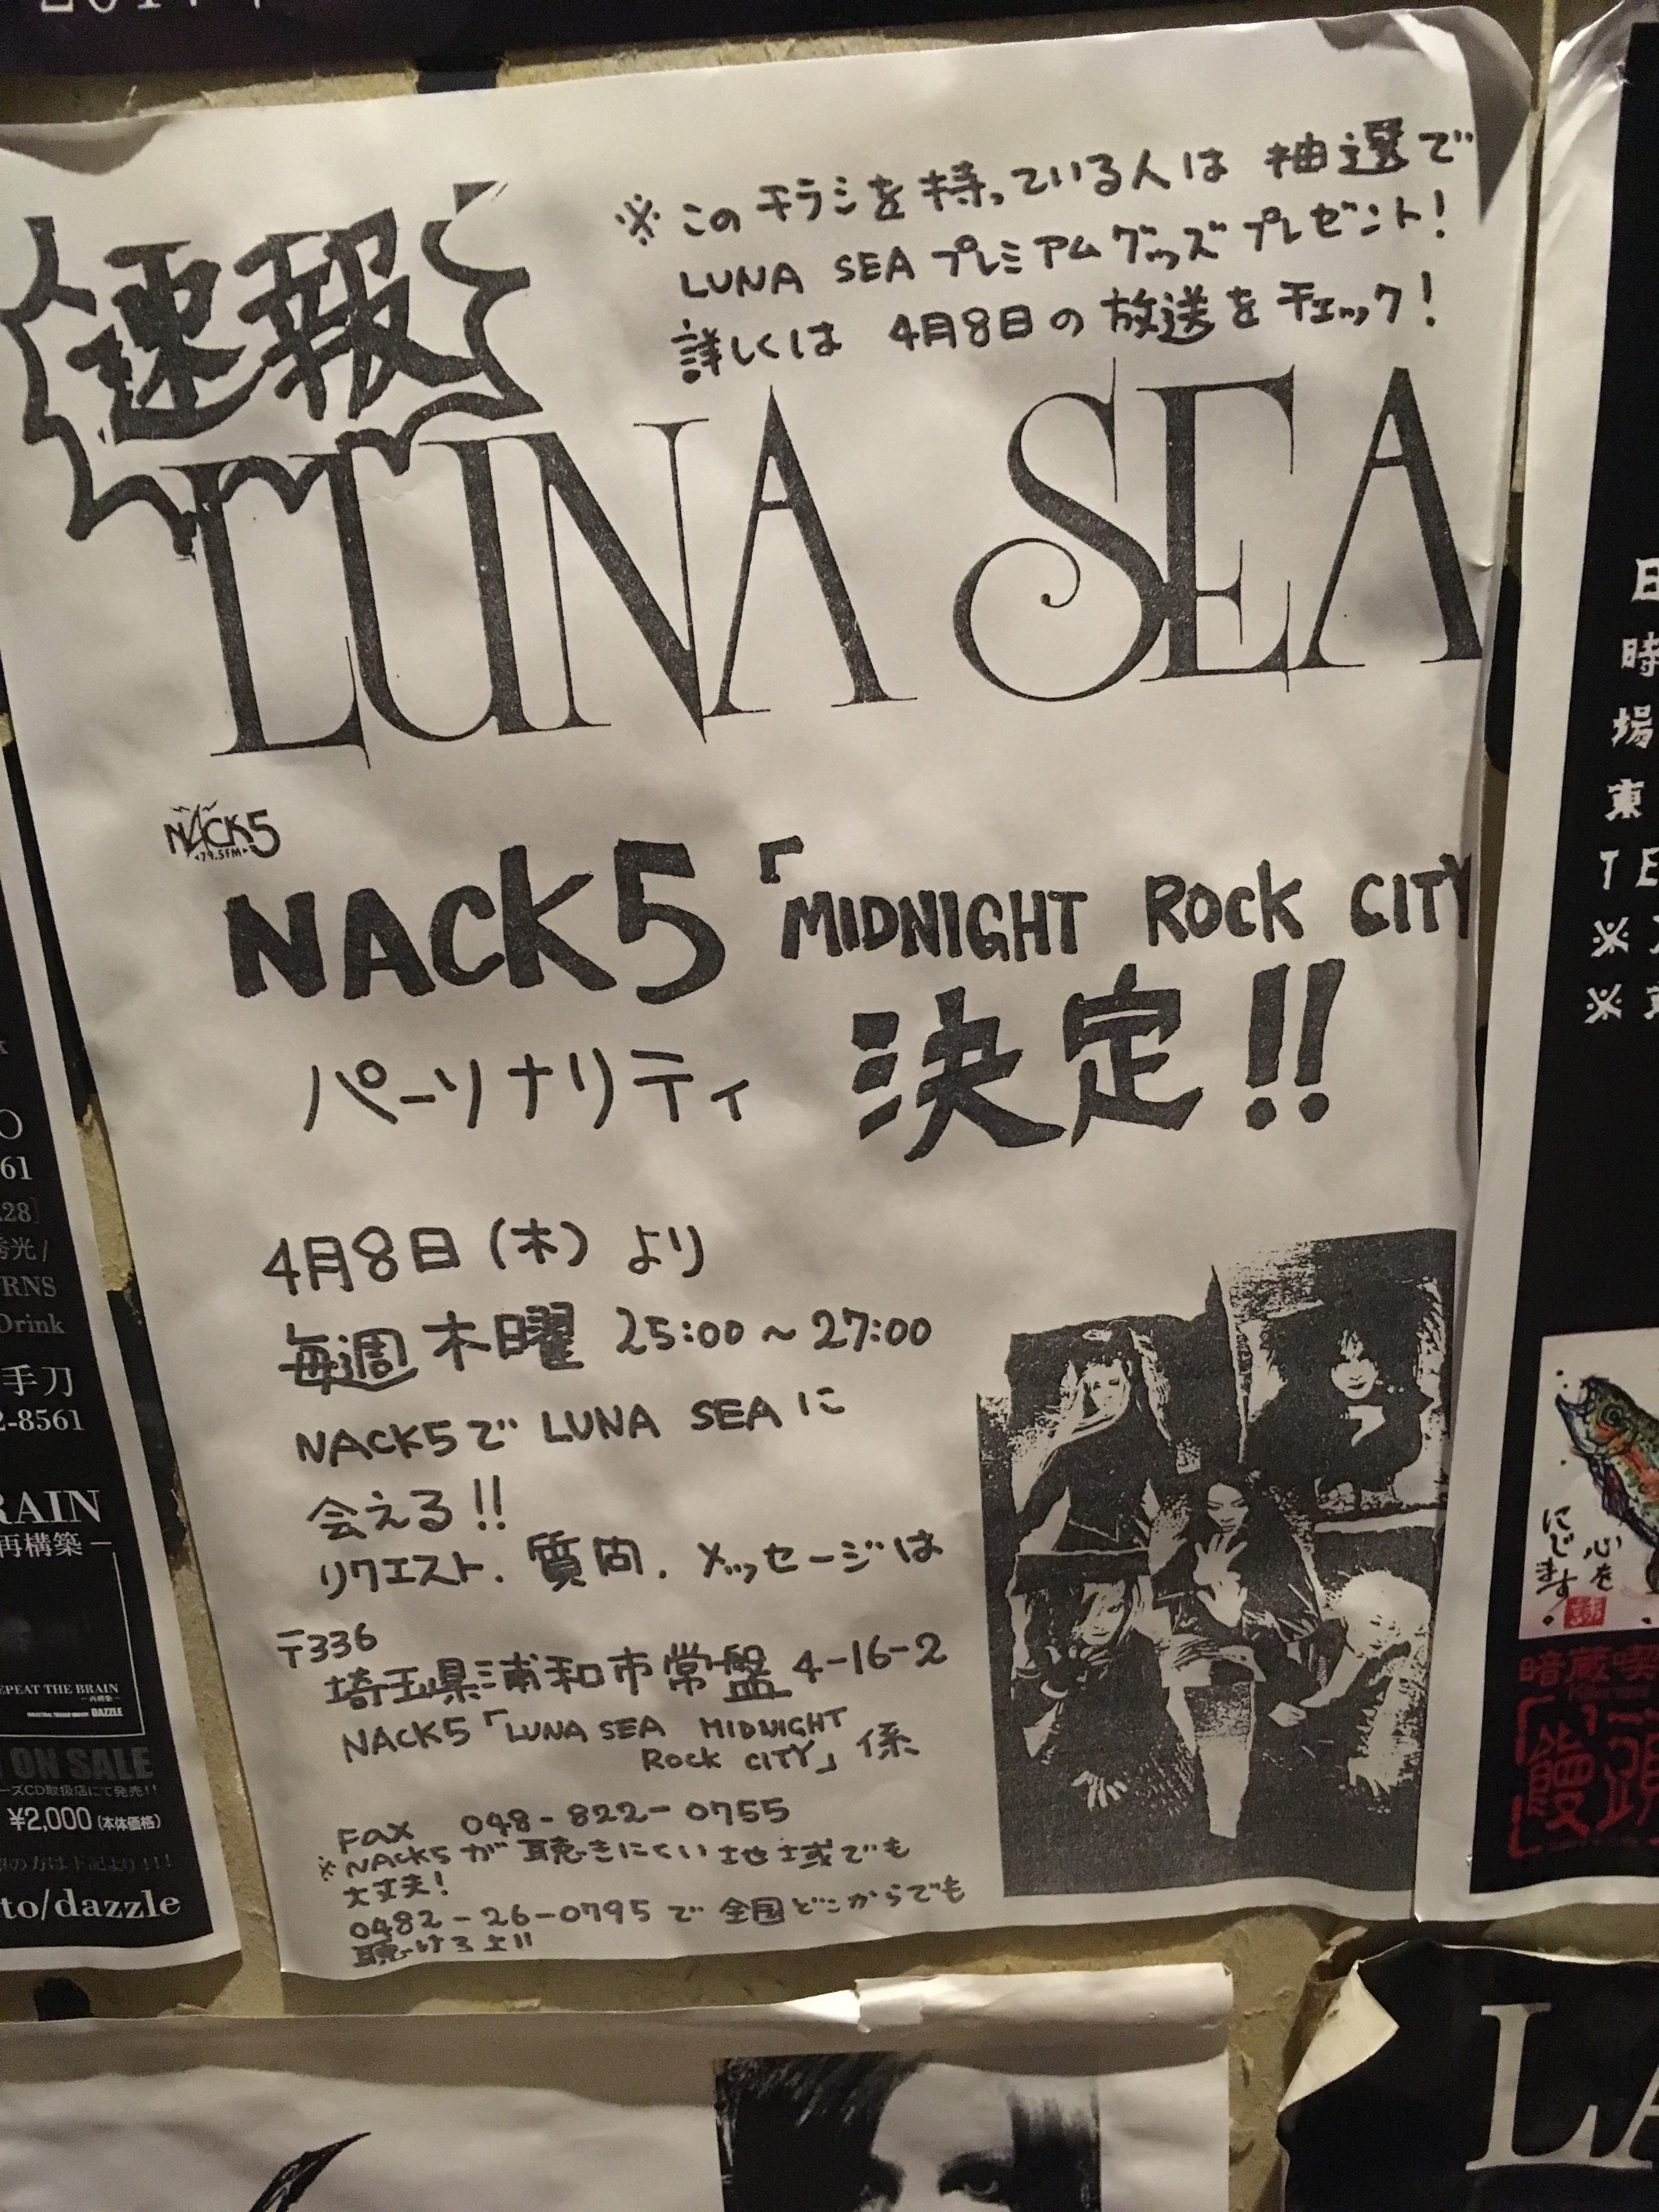 ※このチラシを持っている人は 抽選で
LUNA SEA プレミアムグッズプレゼント!
詳しくは 4月8日の放送をチェック!
速報
LUNA SEA
NACK5
79.5FM
NACK5「MIDNIGHT ROCK CITY
パーソナリティ 決定!!
4月8日(木)より
毎週木曜 25:00~27:00
NACK5で LUNA SEAに
会える!!
リクエスト、質問、メッセージは
〒336
埼玉県浦和市常盤4-16-2
NACK5「LUNA SEA MIDNIGHT
ROCK CITY」係
FAX 048-822-0755
※NACK5が聴きにくい地域でも
大丈夫!
0482-26-0795で全国どこからでも
聴けるよ!!
61
28]
光/
RNS
Drink
手刀
2-8561
RAIN
再構築-
REPEAT THE BRAIN
-再構築-
DAZZLE
ON SALE
ズCD取扱店にて発売!!
¥2,000(本体価格)
の方は下記より!!!
to/dazzle
日
時
場
東
TE
※
※
心を
にじます。
暗蔵喫
饅頭
LA